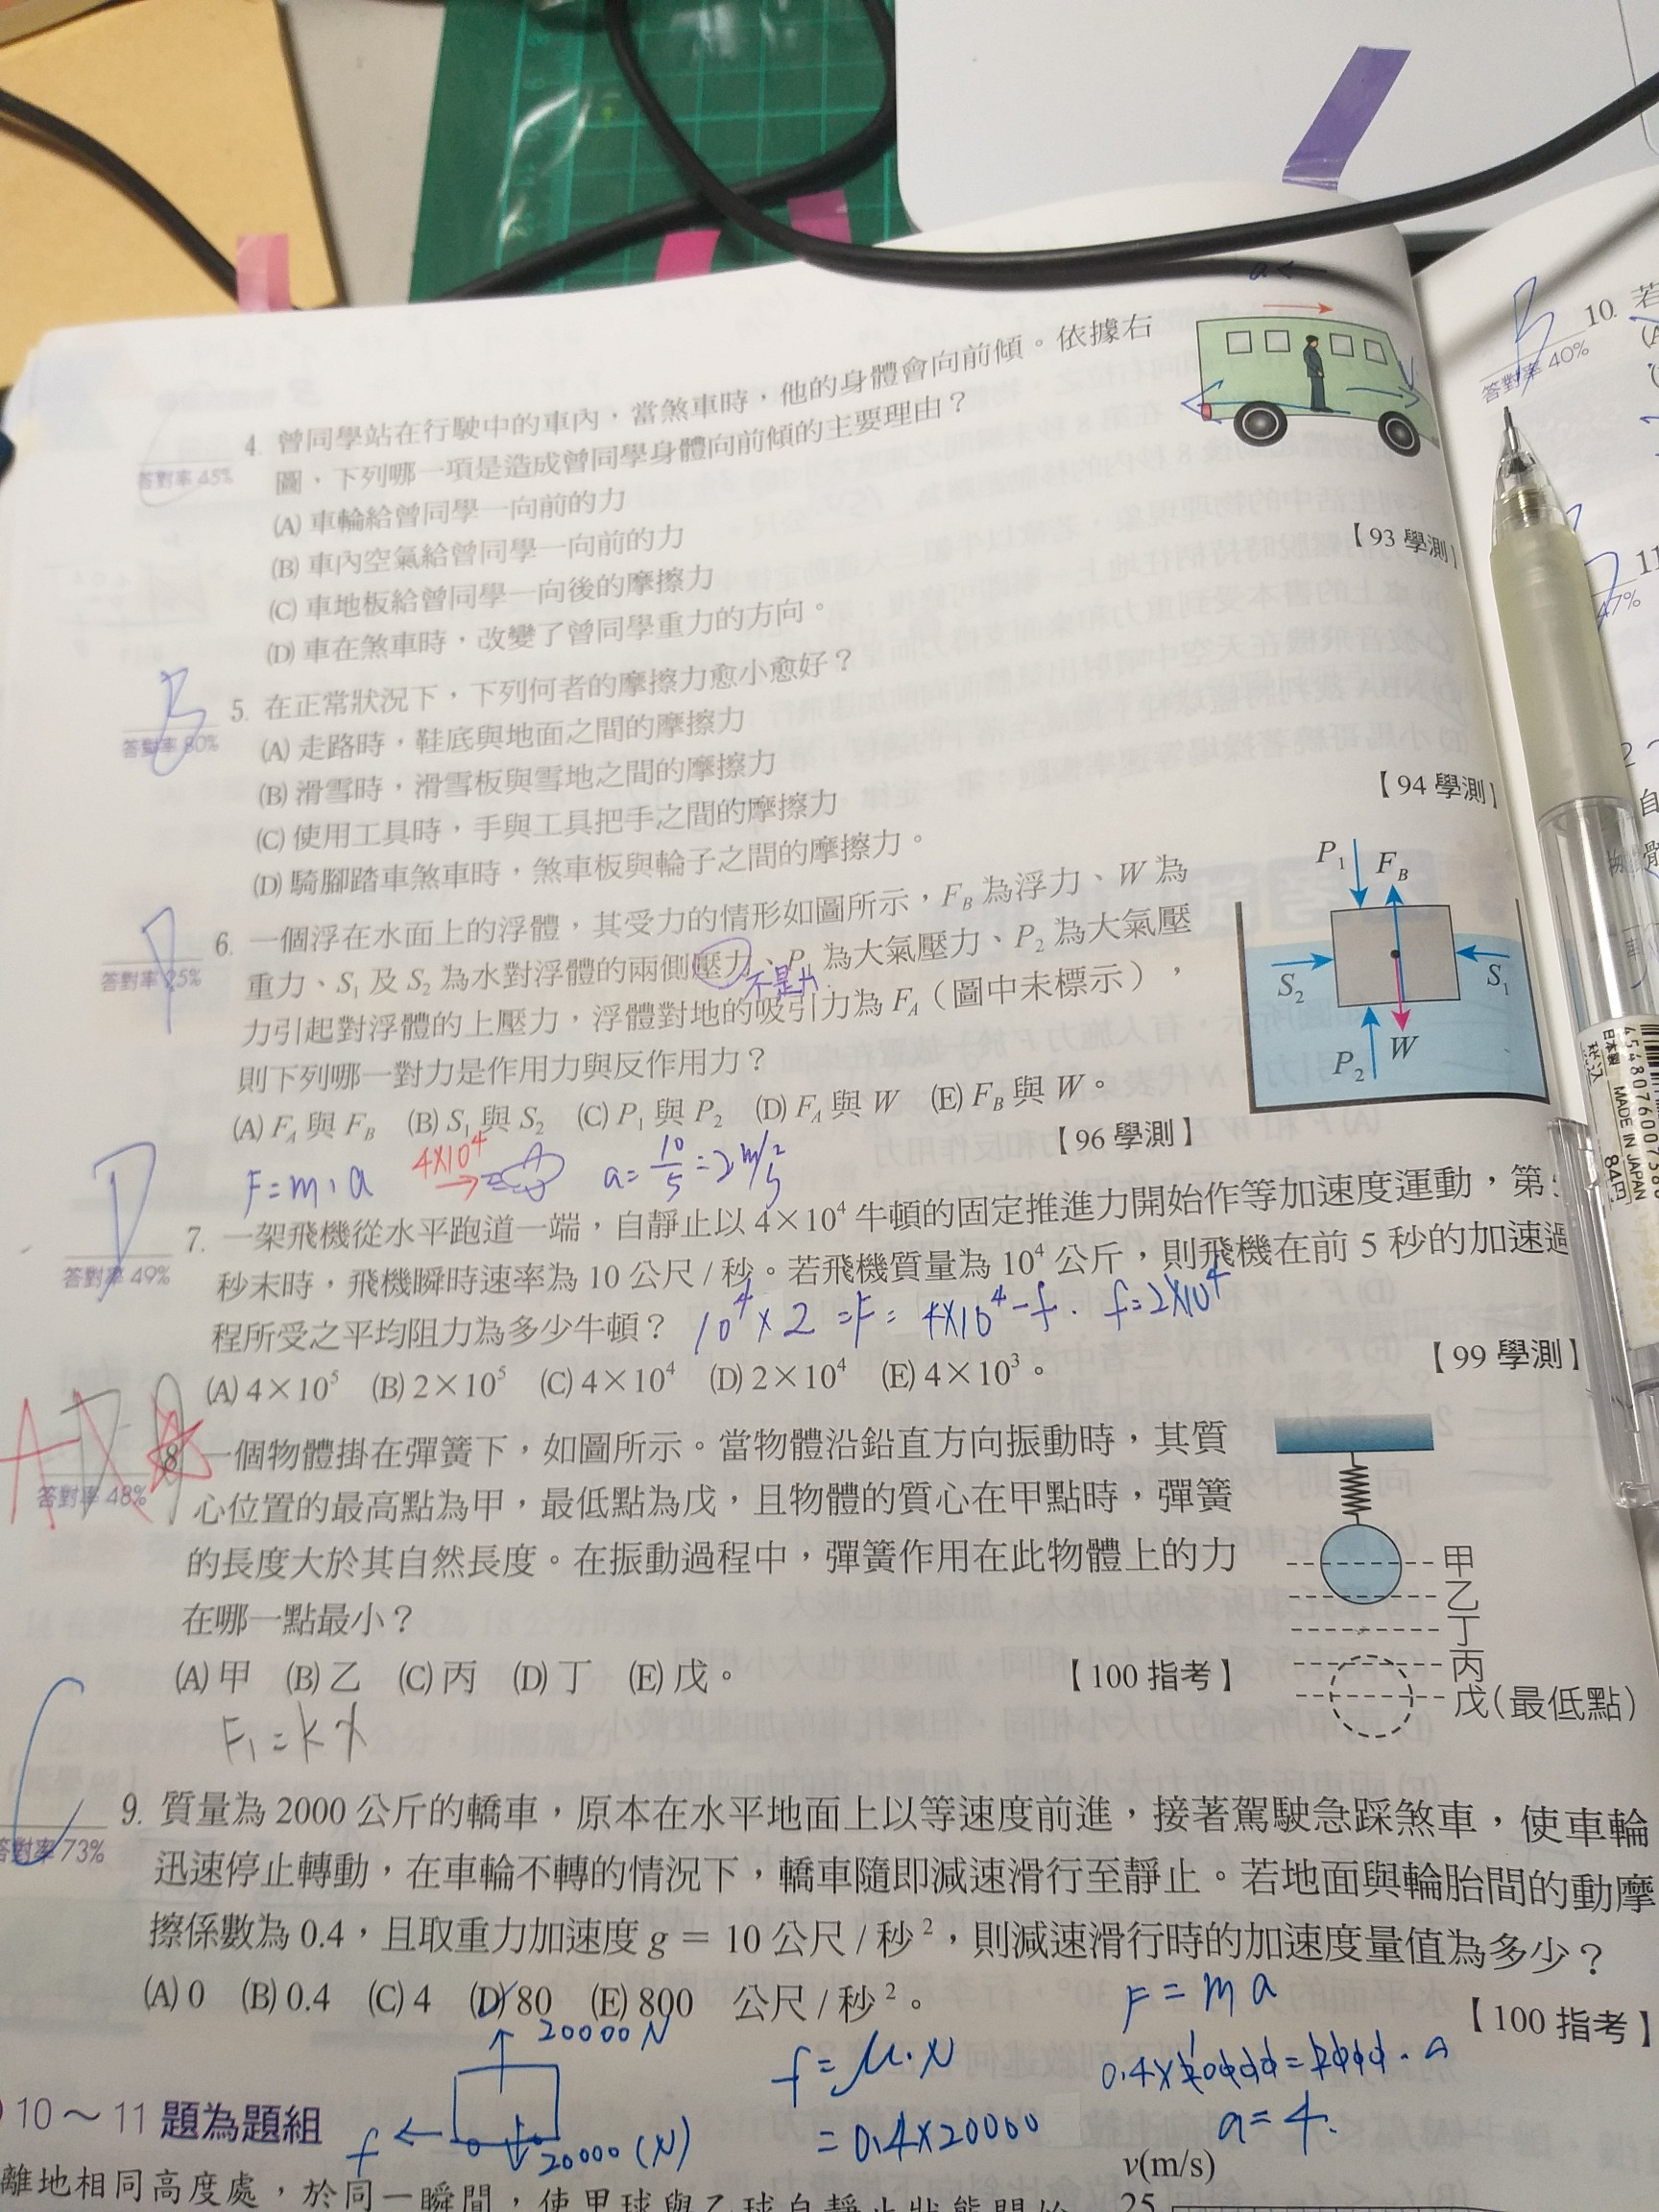 a ←
4. 曾同學站在行駛中的車內，當煞車時，他的身體會向前傾。依據右
答對率 45%
圖，下列哪一項是造成曾同學身體向前傾的主要理由？
(A) 車輪給曾同學一向前的力
(B) 車內空氣給曾同學一向前的力
(C) 車地板給曾同學一向後的摩擦力
(D) 車在煞車時，改變了曾同學重力的方向。
【93 學測】
B
5. 在正常狀況下，下列何者的摩擦力愈小愈好？
答對率 80%
(A) 走路時，鞋底與地面之間的摩擦力
(B) 滑雪時，滑雪板與雪地之間的摩擦力
(C) 使用工具時，手與工具把手之間的摩擦力
(D) 騎腳踏車煞車時，煞車板與輪子之間的摩擦力。
【94 學測】
6. 一個浮在水面上的浮體，其受力的情形如圖所示，F_B 為浮力、W 為
答對率 25%
重力、S₁ 及 S₂ 為水對浮體的兩側壓力、P₁ 為大氣壓力、P₂ 為大氣壓
不是力
力引起對浮體的上壓力，浮體對地的吸引力為 F_A（圖中未標示），
則下列哪一對力是作用力與反作用力？
(A) F_A 與 F_B (B) S₁ 與 S₂ (C) P₁ 與 P₂ (D) F_A 與 W (E) F_B 與 W。
【96 學測】
P₁ F_B
S₂ S₁
P₂ W
F=m·a 4×10⁴ a=10/5=2 m/s²
D
7. 一架飛機從水平跑道一端，自靜止以 4×10⁴ 牛頓的固定推進力開始作等加速度運動，第
答對率 49%
秒末時，飛機瞬時速率為 10 公尺/秒。若飛機質量為 10⁴ 公斤，則飛機在前 5 秒的加速過
程所受之平均阻力為多少牛頓？
10⁴×2=F=4×10⁴−f. f=2×10⁴
(A) 4×10⁵ (B) 2×10⁵ (C) 4×10⁴ (D) 2×10⁴ (E) 4×10³。
【99 學測】
A
8. 一個物體掛在彈簧下，如圖所示。當物體沿鉛直方向振動時，其質
答對率 48%
心位置的最高點為甲，最低點為戊，且物體的質心在甲點時，彈簧
的長度大於其自然長度。在振動過程中，彈簧作用在此物體上的力
在哪一點最小？
(A) 甲 (B) 乙 (C) 丙 (D) 丁 (E) 戊。
【100 指考】
甲
乙
丁
丙
戊(最低點)
F₁=kx
C
9. 質量為 2000 公斤的轎車，原本在水平地面上以等速度前進，接著駕駛急踩煞車，使車輪
答對率 73%
迅速停止轉動，在車輪不轉的情況下，轎車隨即減速滑行至靜止。若地面與輪胎間的動摩
擦係數為 0.4，且取重力加速度 g = 10 公尺/秒²，則減速滑行時的加速度量值為多少？
(A) 0 (B) 0.4 (C) 4 (D) 80 (E) 800 公尺/秒²。
【100 指考】
20000 N
f
20000 (N)
f=μ·N
=0.4×20000
F=ma
a=4.
10～11 題為題組
離地相同高度處，於同一瞬間，使甲球與乙球自靜止狀態開始
v(m/s)
25
B
10. 若
答對率 40%
11
47%
自
日本製
MADE IN JAPAN
84円